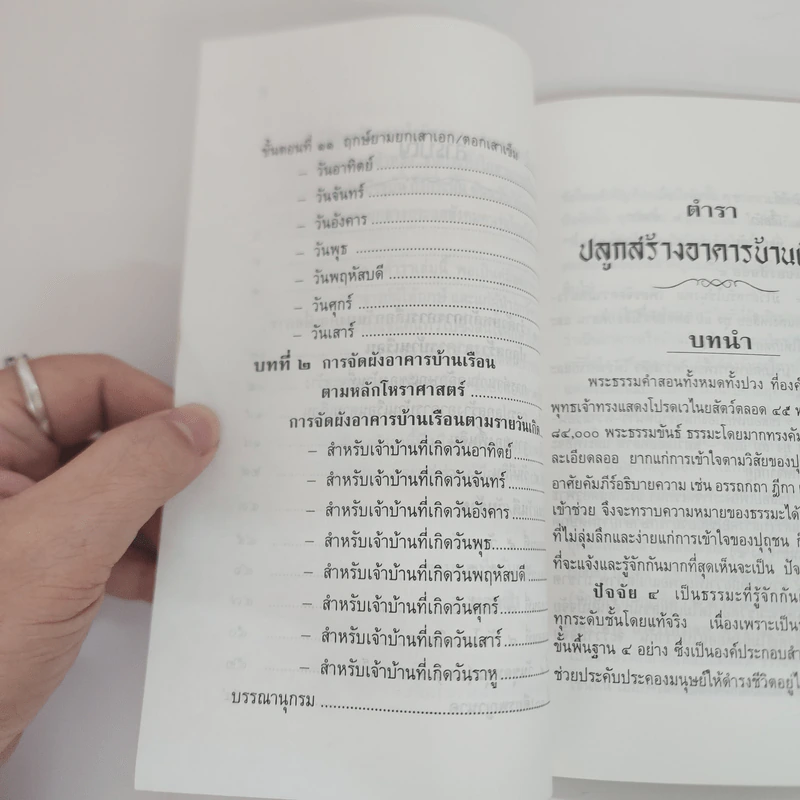 ขั้นตอนที่ ๑๑ ฤกษ์ยามยกเสาเอก/ตอกเสาเข็ม
– วันอาทิตย์
– วันจันทร์
– วันอังคาร
– วันพุธ
– วันพฤหัสบดี
– วันศุกร์
– วันเสาร์
บทที่ ๒ การจัดผังอาคารบ้านเรือน
ตามหลักโหราศาสตร์
การจัดผังอาคารบ้านเรือนตามรายวันเกิด
– สำหรับเจ้าบ้านที่เกิดวันอาทิตย์
– สำหรับเจ้าบ้านที่เกิดวันจันทร์
– สำหรับเจ้าบ้านที่เกิดวันอังคาร
– สำหรับเจ้าบ้านที่เกิดวันพุธ
– สำหรับเจ้าบ้านที่เกิดวันพฤหัสบดี
– สำหรับเจ้าบ้านที่เกิดวันศุกร์
– สำหรับเจ้าบ้านที่เกิดวันเสาร์
– สำหรับเจ้าบ้านที่เกิดวันราหู
บรรณานุกรม
ตำรา
ปลูกสร้างอาคารบ้าน
บทนำ
พระธรรมคำสอนทั้งหมดทั้งปวง ที่องค์
พุทธเจ้าทรงแสดงโปรดเวไนยสัตว์ตลอด ๔๕
๘๔,๐๐๐ พระธรรมขันธ์ ธรรมะโดยมากทรง
ละเอียดลออ ยากแก่การเข้าใจตามวิสัยของ
อาศัยคัมภีร์อธิบายความ เช่น อรรถกถา ฎีกา
เข้าช่วย จึงจะทราบความหมายของธรรมะได้
ที่ไม่ลุ่มลึกและง่ายแก่การเข้าใจของปุถุชน
ที่จะแจ้งและรู้จักกันมากที่สุดเห็นจะเป็น
ปัจจัย ๔ เป็นธรรมะที่รู้จักกัน
ทุกระดับชั้นโดยแท้จริง เนื่องเพราะเป็น
ขั้นพื้นฐาน ๔ อย่าง ซึ่งเป็นองค์ประกอบ
ช่วยประคับประคองมนุษย์ให้ดำรงชีวิตอยู่